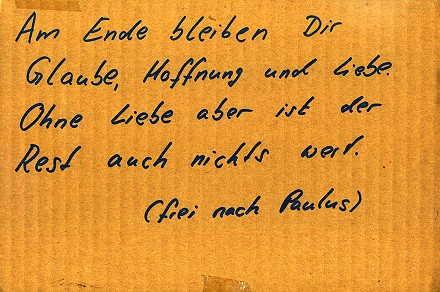 Am Ende bleiben Dir
Glaube, Hoffnung und Liebe.
Ohne Liebe aber ist der
Rest auch nichts wert.
(frei nach Paulus)